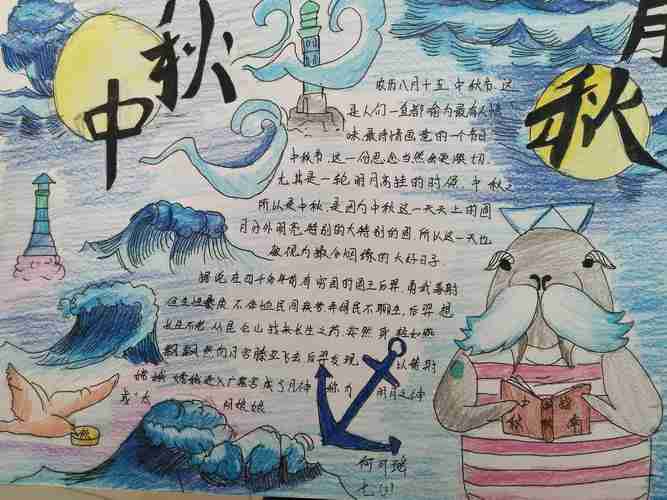 中秋
月
秋
农历八月十五,中秋节.这
是人们一直都喻为最有人情
味.最诗情画意的一个节日
中秋节.这一份思念当然会更深切.
尤其是一轮明月高挂的时候.中秋之
所以是中秋,是因为中秋这一天天上的圆
月分外明亮特别的大特别的圆,所以这一天也
被视为撮合姻缘的大好日子
据说在四千余年前有穷国的国王后羿,勇武善射
但生性 不体恤民间疾苦弄得民不聊生,后羿想
长生不老,从昆仑山找来长生之药,突然
飘飘然向月宫腾空飞去后羿发现,以箭射
嫦娥,嫦娥逃入广寒宫成了月神 称为 明月之神
娘娘
中秋
何
七(3)